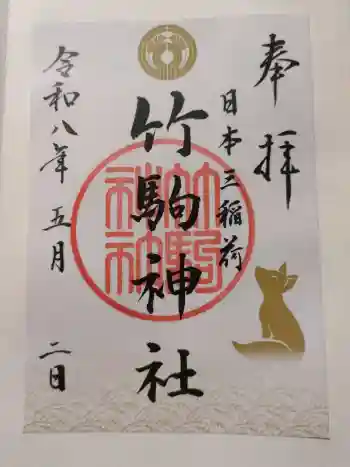 奉拝
日本三稲荷
竹駒神社
竹駒神社
令和八年五月二日